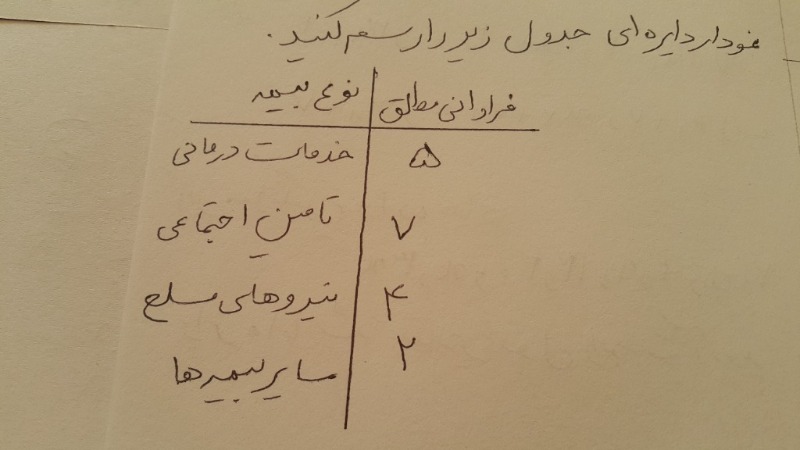 نمودار دایره ای جدول زیر را رسم کنید.
فراوانی مطلق نوع بیمه
۵ خدمات درمانی
۷ تامین اجتماعی
۴ نیروهای مسلح
۲ سایر بیمه ها